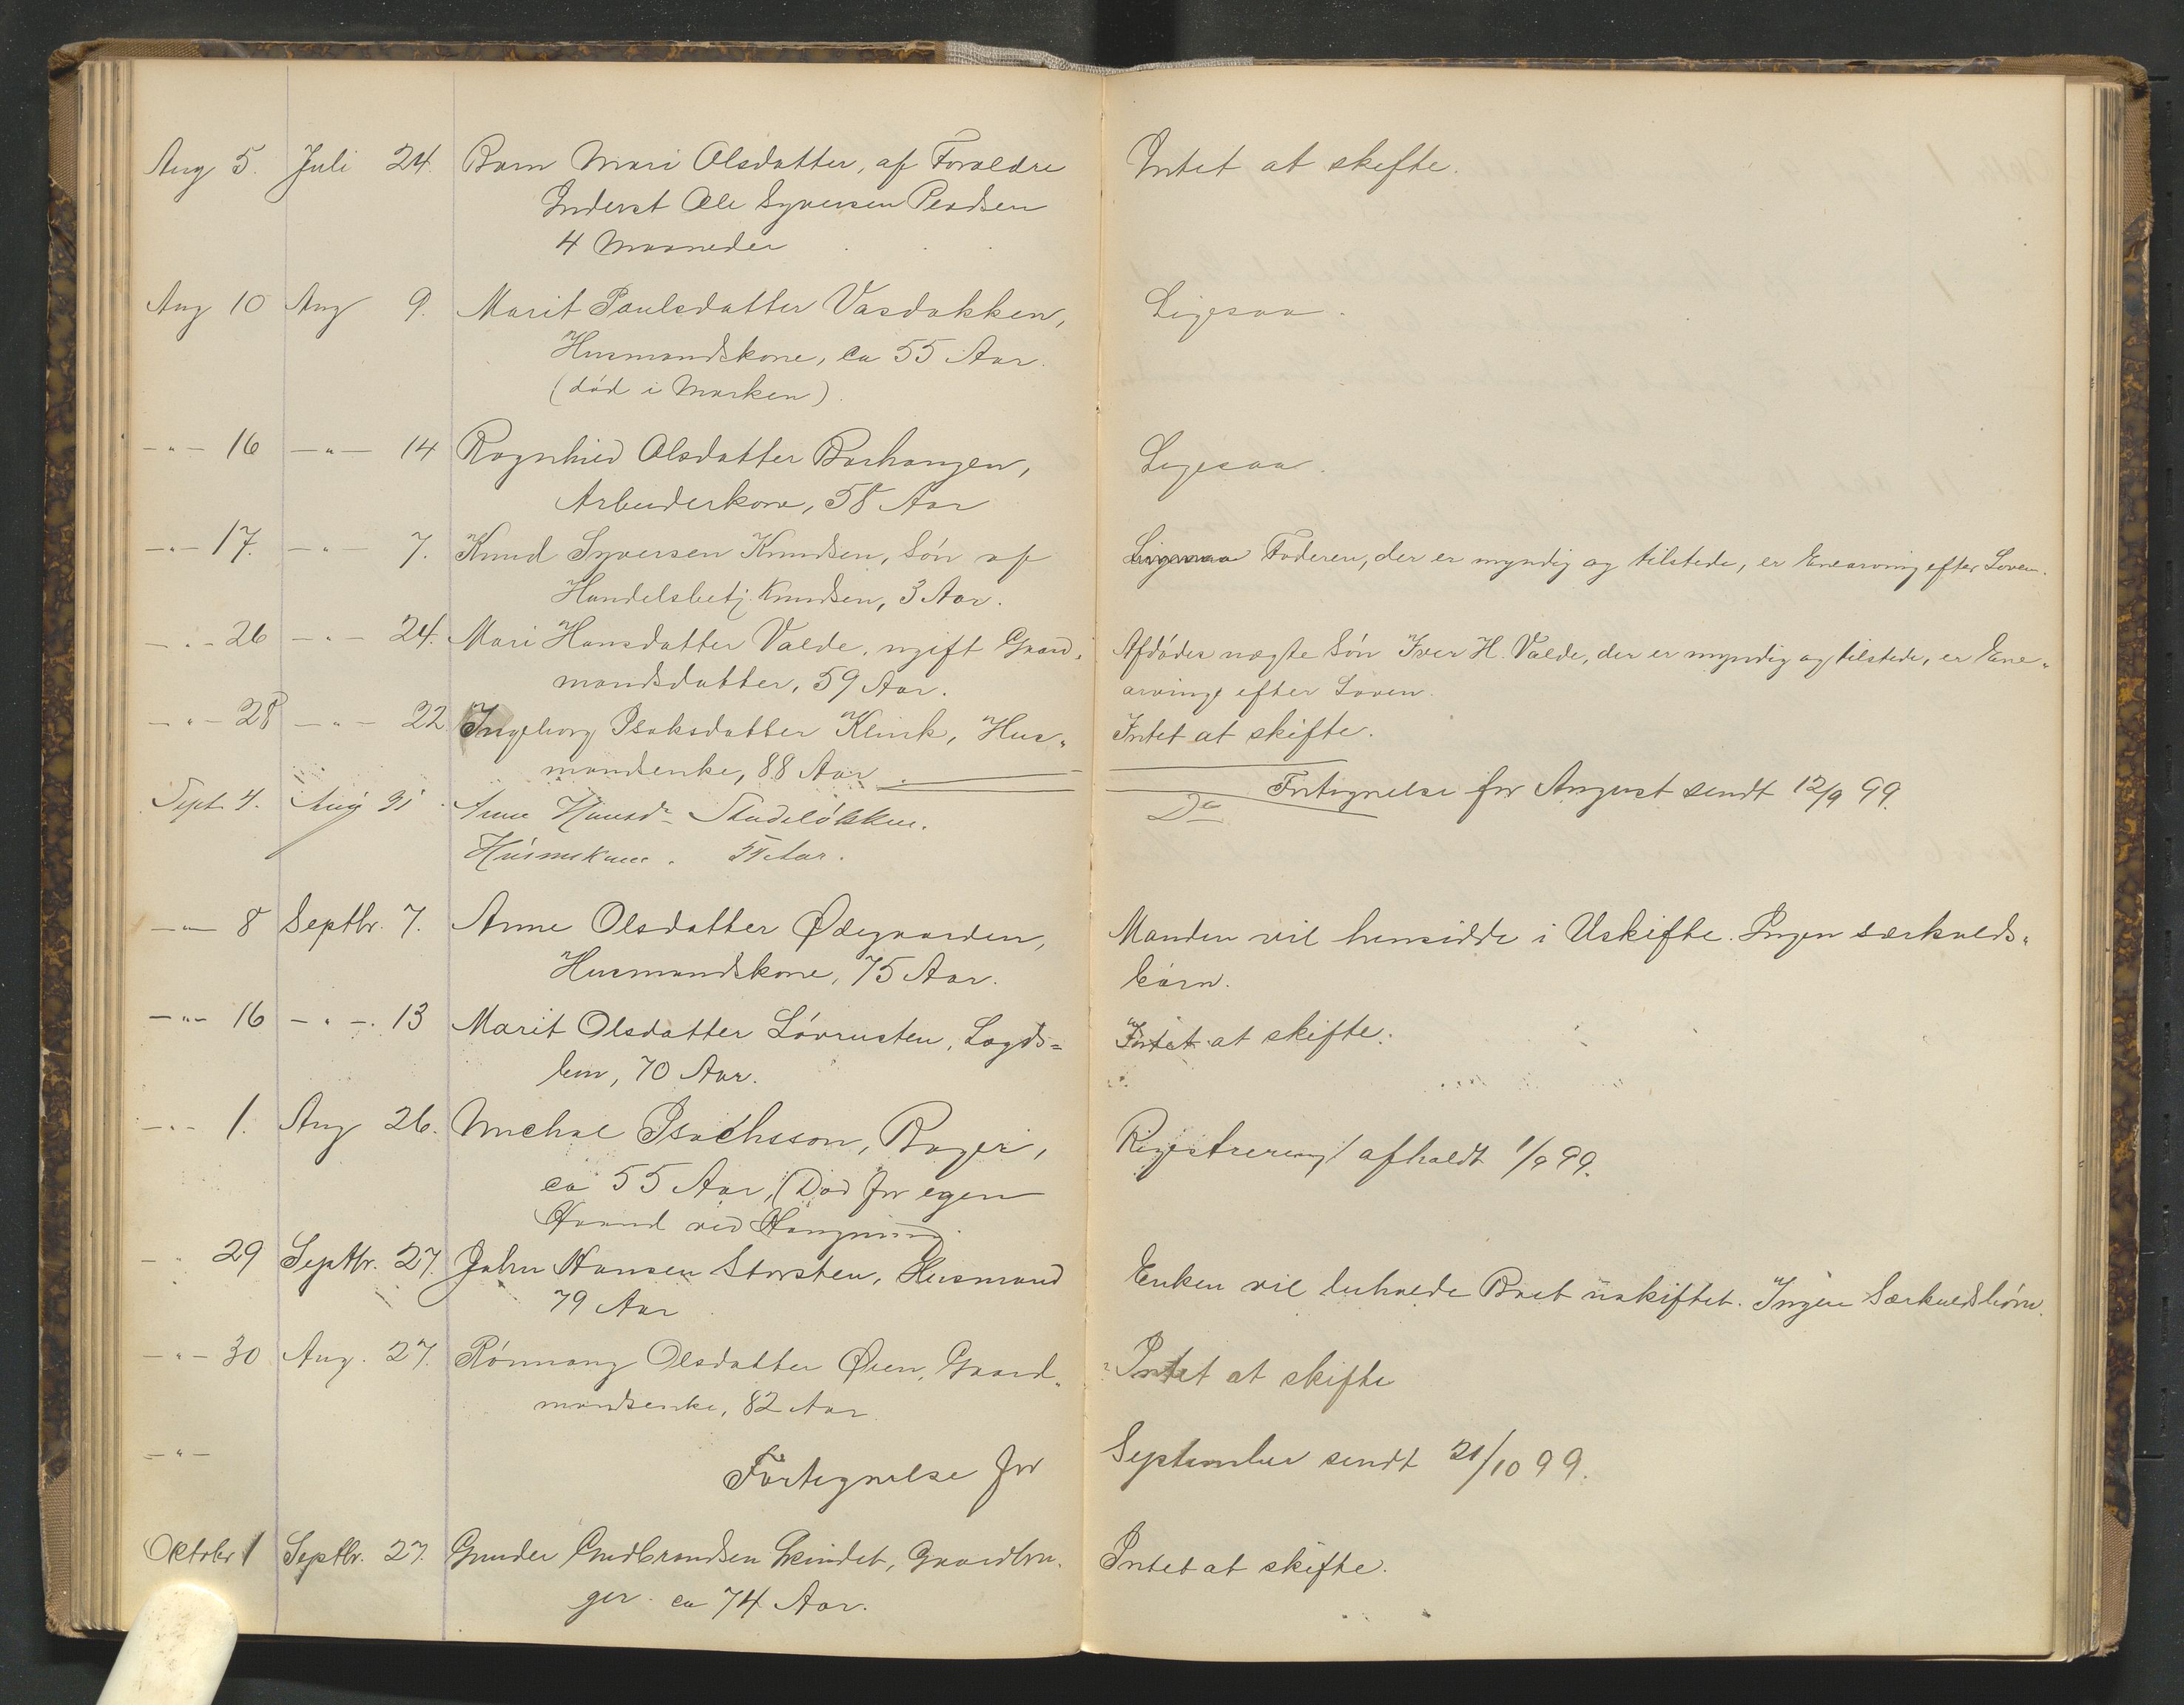 Aug 5. Juli 24. Barn Mari Olsdatter, af Forældre Intet at skifte.
Inderst Ole Syversen
4 Maaneder
Aug 10 Aug 9. Marit Paulsdatter Vasdokken, Ligesaa.
Husmandskone, ca 55 Aar.
(død i Marken).
-"- 16 -"- 14 Ragnhild Olsdatter Barhaugen, Ligesaa.
Arbeiderkone, 58 Aar
-"- 17. -"- 7. Knud Syversen Knudsen, Søn af Ligesaa Faderen, der er myndig og tilstede, er Enearving efter Loven.
Handelsbetj. Knudsen, 3 Aar.
-"- 26 -"- 24. Mari Hansdatter Valde, ugift Gaard- Afdødes uægte Søn Iver H. Valde, der er myndig og tilstede, er Ene-
mandsdatter, 59 Aar. arving efter Loven.
-"- 28 -"- 22 Ingeborg Isaksdatter Klink, Hus- Intet at skifte.
mandsenke, 88 Aar. Fortegnelse for August sendt 12/9 99.
Sept. 4. Aug 31. Anne Hansdr Do
-"- 8 Septbr. 7. Anne Olsdatter Ødegaarden, Manden vil hensidde i Uskifte. Ingen særkulds-
Husmandskone, 75 Aar. børn.
-"- 16 -"- 13 Marit Olsdatter Løvrusten, Lægds= Intet at skifte.
lem, 70 Aar.
-"- 1. Aug 26. Michal Isachsson, Bager, Registrering afholdt 1/9 99.
ca 55 Aar, (Død for egen
Haand ved Hængning).
-"- 29 Septbr. 27. John Hansen Storsten, Husmand Enken vil beholde Boet uskiftet. Ingen Særkuldsbørn.
79 Aar
-"- 30 Aug. 27. Rønnaug Olsdatter Øien, Gaard- Intet at skifte
mandsenke, 82 Aar
-"- Fortegnelse for September sendt 21/10 99.
Oktober 1 Septbr. 27. Gunder Gudbrandsen Grindet, Gaardbru- Intet at skifte.
ger. ca 74 Aar.